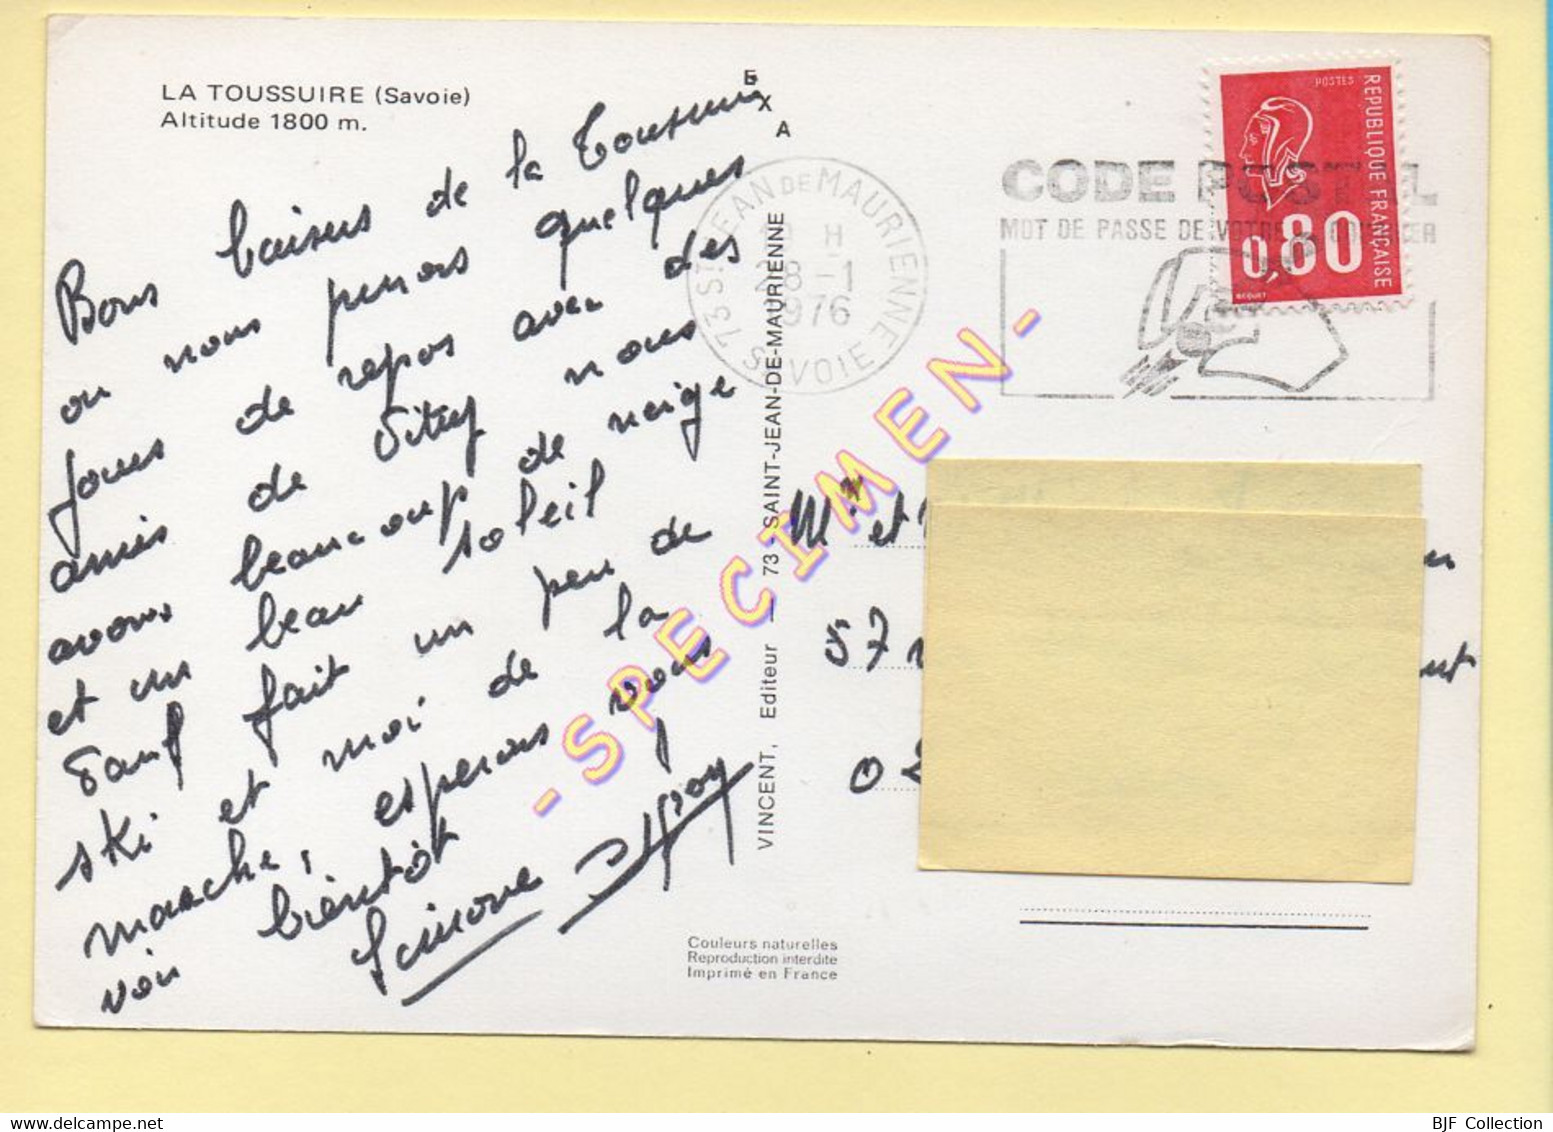 LA TOUSSUIRE (Savoie)
Altitude 1800 m.
EXA
Bons baisers de la Toussuire
ou nous pensons quelques
jours de repos avec des
amis de Vitry nous
avons beaucoup de neige
et un beau soleil
fait un peu de
ski et moi de la
marche, esperons vous
voir bientôt
Simone
73 ST JEAN DE MAURIENNE
H
28-1
1976
SAVOIE
CODE POSTAL
MOT DE PASSE DE VOTRE COURRIER
POSTES
REPUBLIQUE FRANÇAISE
0,80
BEQUET
VINCENT, Editeur — 73-SAINT-JEAN-DE-MAURIENNE
-SPECIMEN-
Mr et
57
0
Couleurs naturelles
Reproduction interdite
Imprimé en France
BJF Collection